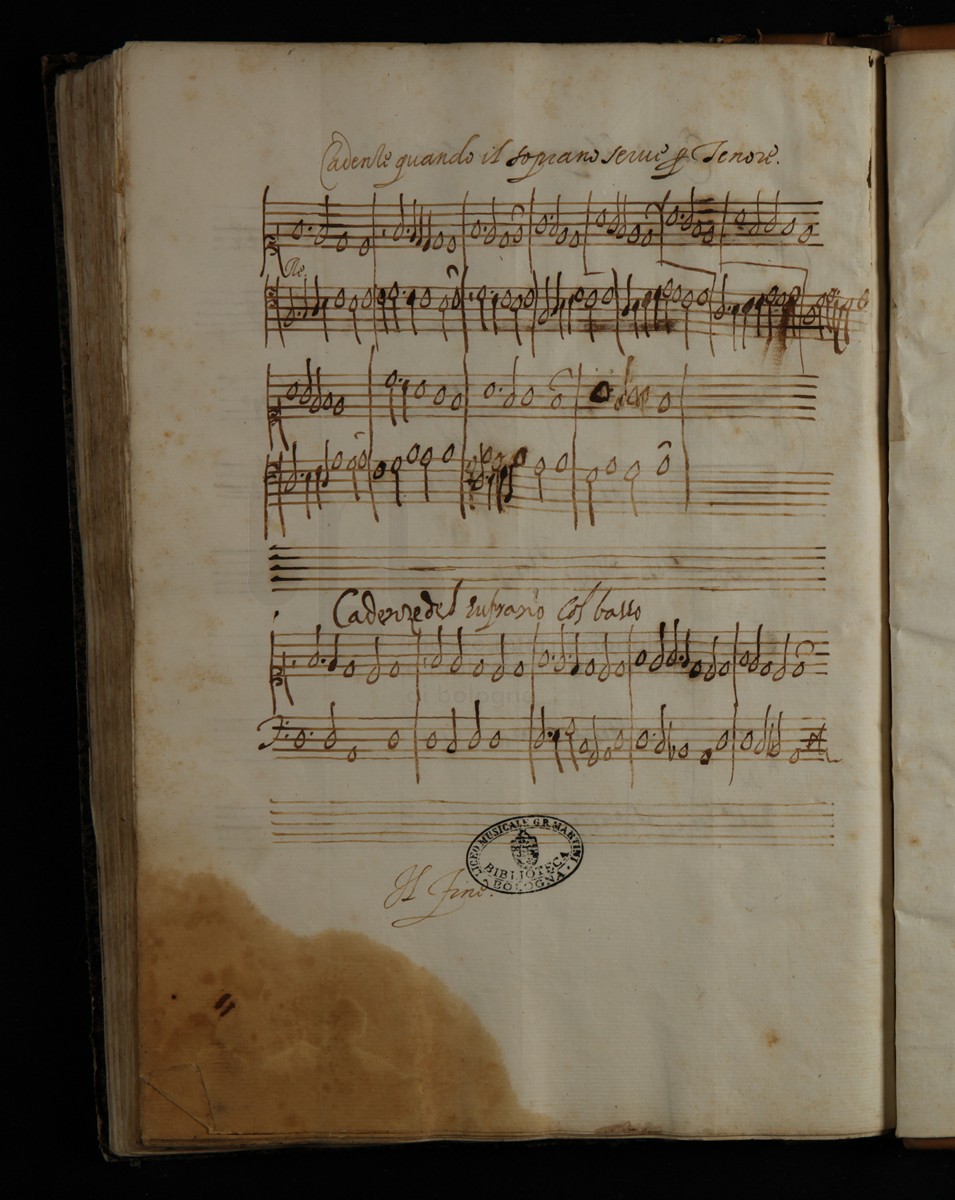 Cadenze quando il soprano serve p Tenore.
Cadenze del suprano Col basso
LICEO MUSICALE G.B. MARTINI
BIBLIOTECA
BOLOGNA
Il Fine.